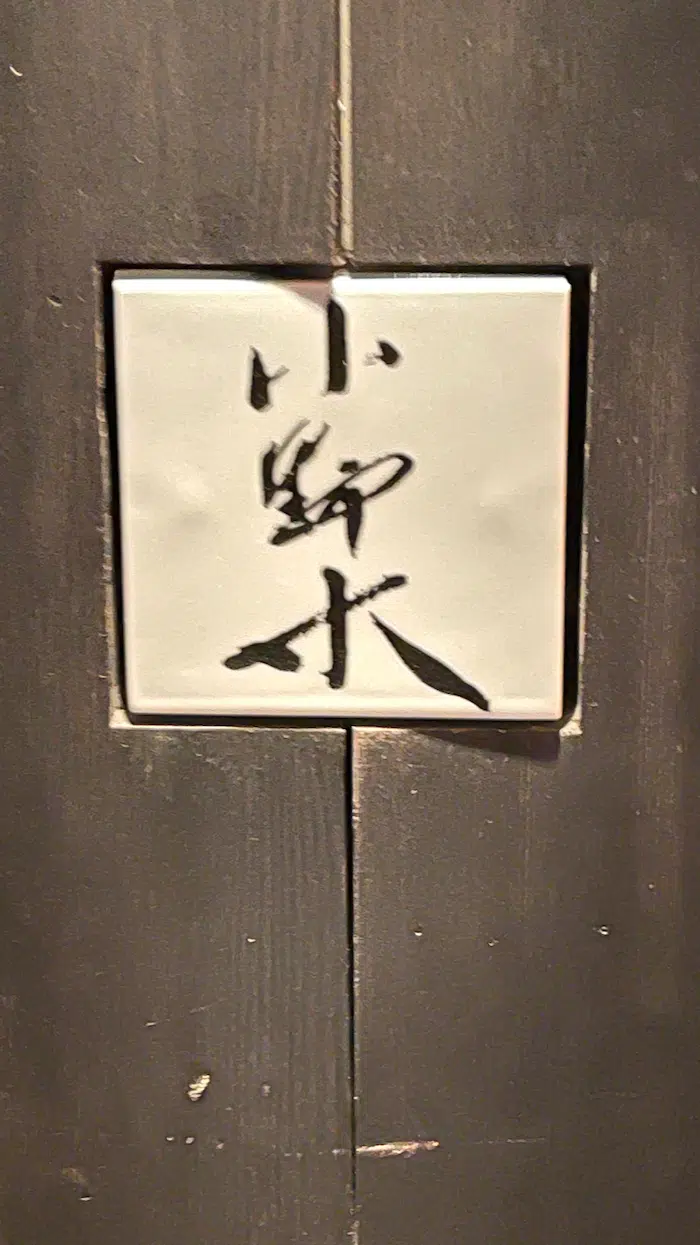 小野木